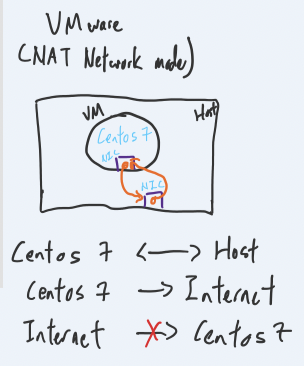 VMware
(NAT Network mode)
VM
Host
Centos 7
NIC
NIC
Centos 7 <—> Host
Centos 7 —> Internet
Internet —x—> Centos 7